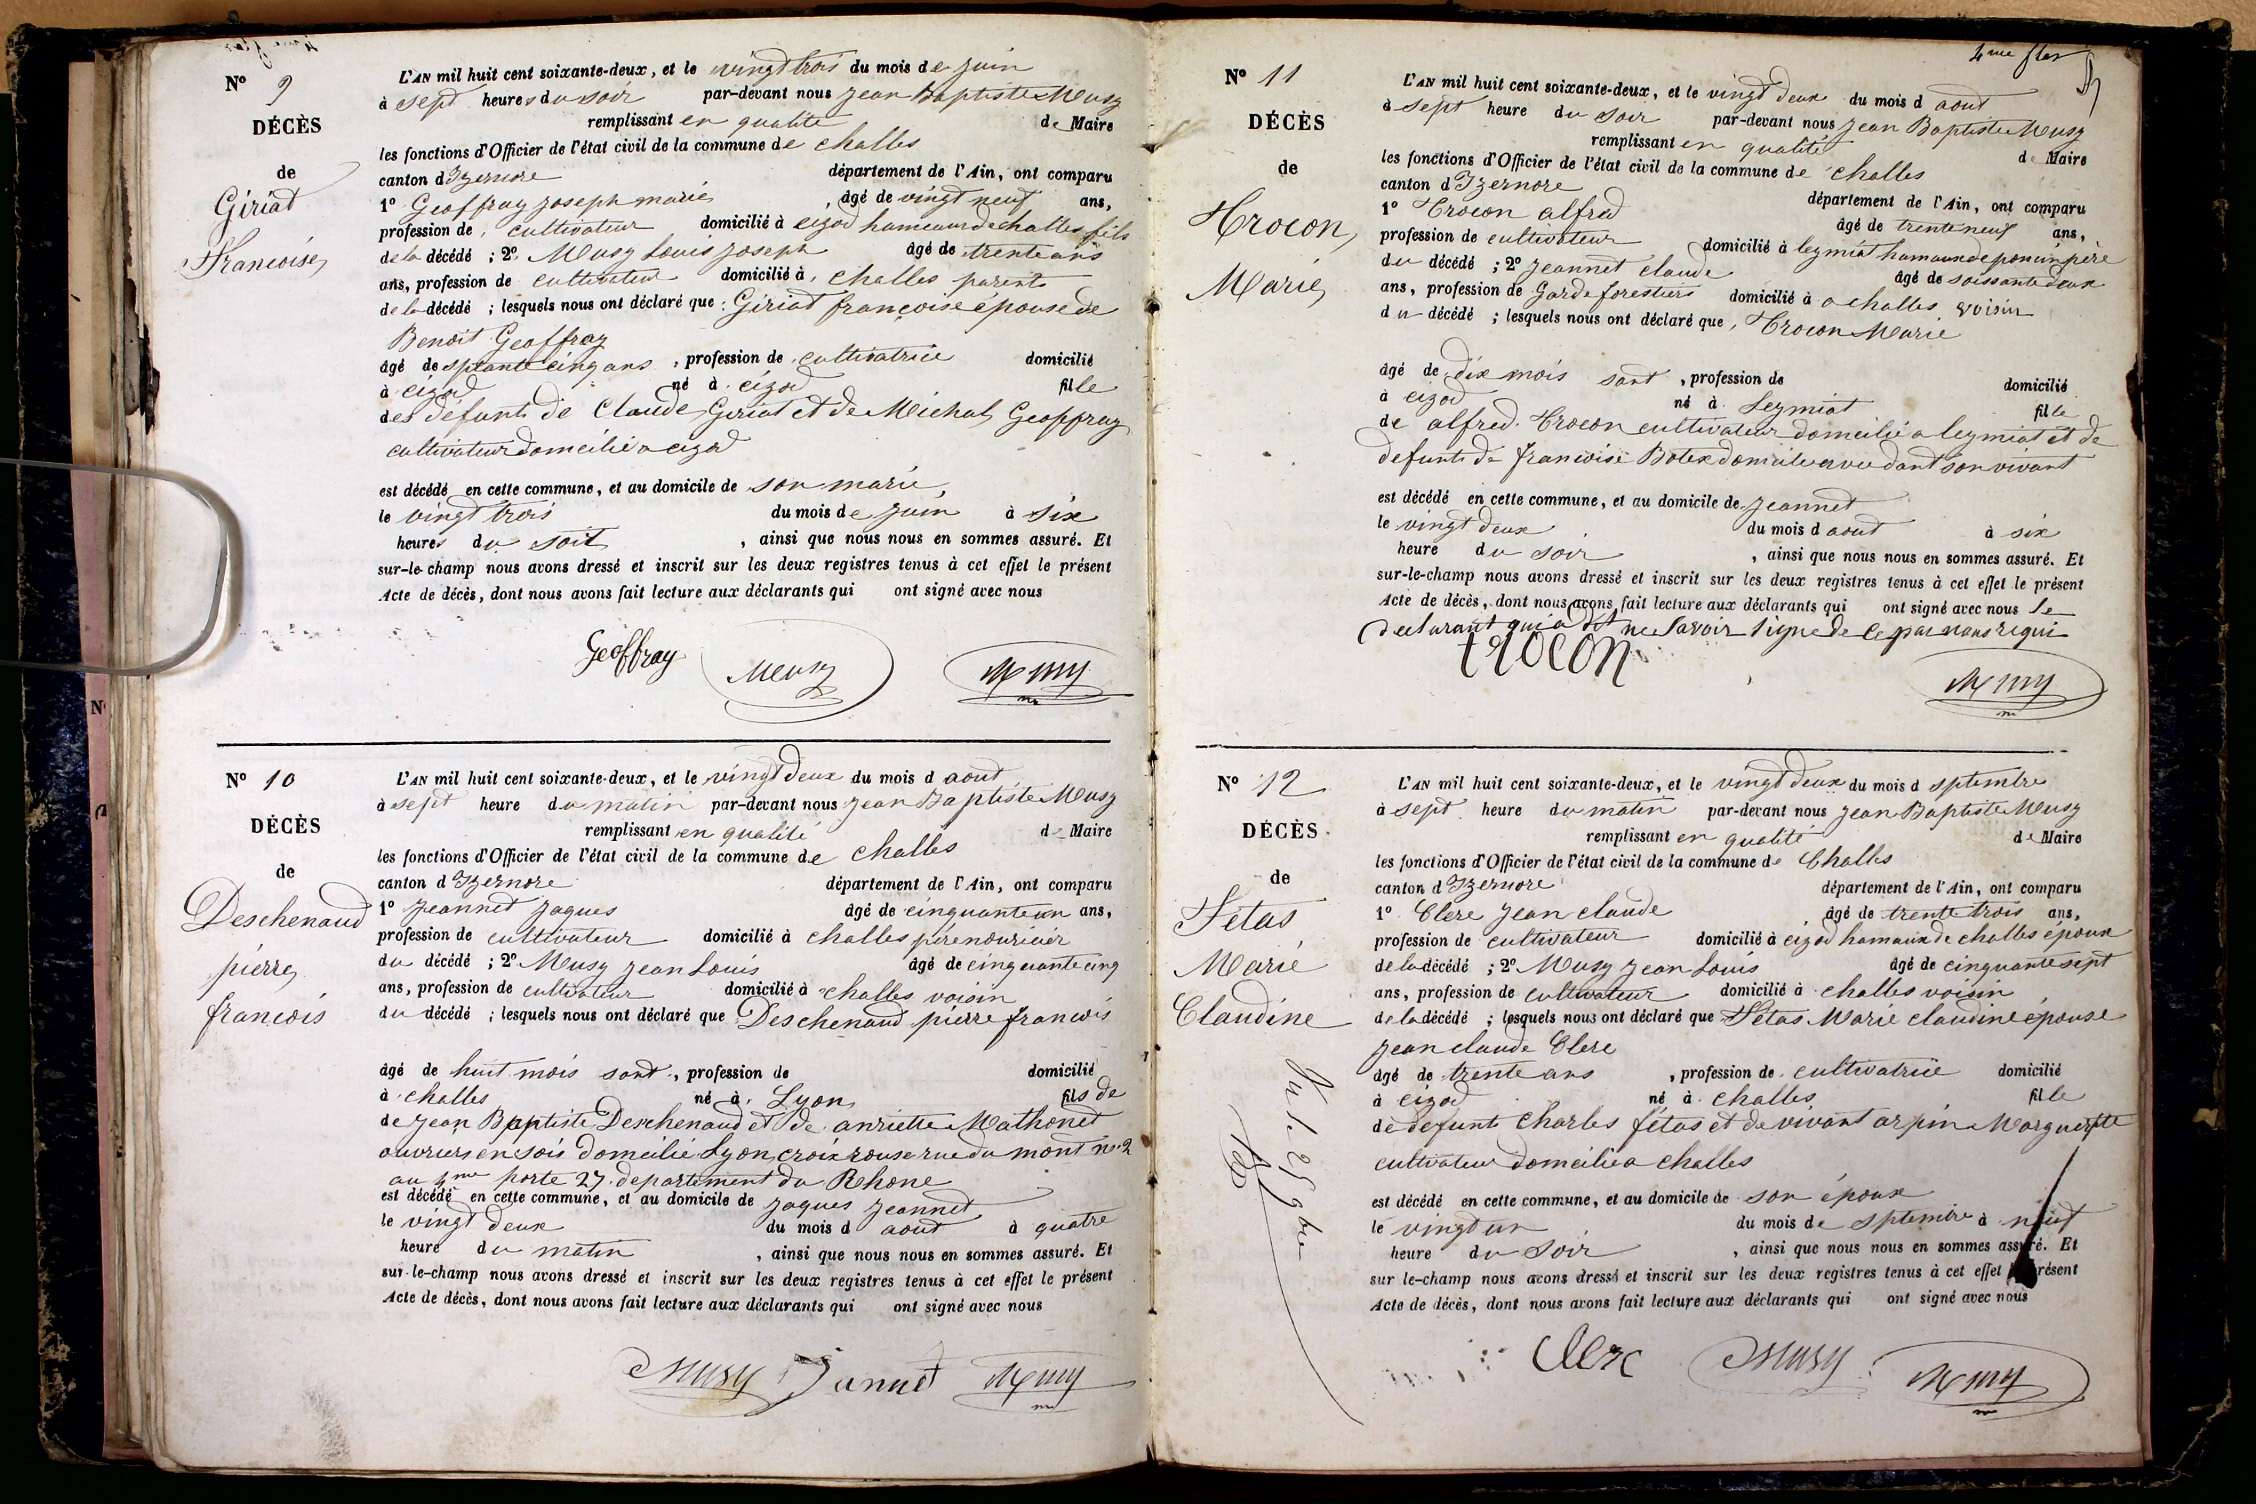 N° 9
DÉCÈS
de
Giriat
Francoise
L'AN mil huit cent soixante-deux, et le vingt trois du mois de juin
à sept heures du soir par-devant nous Jean Baptiste Musy
remplissant en qualité de Maire
les fonctions d'Officier de l'état civil de la commune de challes
canton d'Izernore département de l'Ain, ont comparu
1° Geoffray joseph marie, âgé de vingt neuf ans,
profession de cultivateur domicilié à cizod hameaux de challes fils
de la décédé ; 2° Musy Louis joseph âgé de trente ans
ans, profession de cultivateur domicilié à challes parent
de la décédé ; lesquels nous ont déclaré que : Giriat françoise épouse de
Benoit Geoffray
âgé de sptante cinq ans, profession de cultivatrice domicilié
à cizod né à cizod fille
des défunt de Claude Giriat et de Michal Geoffray
cultivateur domcilié a cizod
est décédé en cette commune, et au domicile de son marie,
le vingt trois du mois de juin à six
heures du soit, ainsi que nous nous en sommes assuré. Et
sur-le-champ nous avons dressé et inscrit sur les deux registres tenus à cet effet le présent
Acte de décès, dont nous avons fait lecture aux déclarants qui ont signé avec nous
Geoffray Musy Musy
N° 10
DÉCÈS
de
Deschenaud
pierre
francois
L'AN mil huit cent soixante-deux, et le vingt deux du mois d aout
à sept heure du matin par-devant nous jean Baptiste Musy
remplissant en qualité de Maire
les fonctions d'Officier de l'état civil de la commune de challes
canton d'Izernore département de l'Ain, ont comparu
1° jeannet jaques âgé de cinquante un ans,
profession de cultivateur domicilié à challes pére nouriciér
du décédé ; 2° Musy jean Louis âgé de cinquante cinq
ans, profession de cultivateur domicilié à challes voisin
du décédé ; lesquels nous ont déclaré que Deschenaud pierre francois
âgé de huit mois sont, profession de domicilié
à challes né à Lyon fils de
de jean Baptiste Deschenaud et de anriette Mathonet
ouvriers en sois domcilié Lyon croix rouse rue du mont n° 2
au 4me porte 27 departiment du Rhone
est décédé en cette commune, et au domicile de jaques jeannet
le vingt deux du mois d aout à quatre
heure du matin, ainsi que nous nous en sommes assuré. Et
sur-le-champ nous avons dressé et inscrit sur les deux registres tenus à cet effet le présent
Acte de décès, dont nous avons fait lecture aux déclarants qui ont signé avec nous
Musy Jannet Musy
4me
N° 11
DÉCÈS
de
Trocon
Marie
L'AN mil huit cent soixante-deux, et le vingt deux du mois d aout
à sept heure du soir par-devant nous jean Baptiste Musy
remplissant en qualité de Maire
les fonctions d'Officier de l'état civil de la commune de challes
canton d'Izernore département de l'Ain, ont comparu
1° Trocon alfred âgé de trente neuf ans,
profession de cultivateur domicilié à leymiat hamaux de poncin père
du décédé ; 2° jeannet claude âgé de soissante deux
ans, profession de Garde forestiers domicilié à a challes voisin
du décédé ; lesquels nous ont déclaré que, Trocon Marie
âgé de dix mois sont, profession de domicilié
à cizod né à Leymiat fille
de alfred Trocon cultivateur domcilié a leymiat et de
defunt de francoise Botex domcilié avec dant son vivant
est décédé en cette commune, et au domicile de jeannet
le vingt deux du mois d aout à six
heure du soir, ainsi que nous nous en sommes assuré. Et
sur-le-champ nous avons dressé et inscrit sur les deux registres tenus à cet effet le présent
Acte de décès, dont nous avons fait lecture aux déclarants qui ont signé avec nous le
declarant qui a dit ne savoir signe de ce par nous requi
trocon Musy
N° 12
DÉCÈS
de
Fétas
Marie
Claudine
L'AN mil huit cent soixante-deux, et le vingt deux du mois d sptembre
à sept heure du matin par-devant nous jean Baptiste Musy
remplissant en qualité de Maire
les fonctions d'Officier de l'état civil de la commune de Challes
canton d'Izernore département de l'Ain, ont comparu
1° Clere jean claude âgé de trente trois ans,
profession de cultivateur domicilié à cizod hamaux de challes époux
de la décédé ; 2° Musy jean Louis âgé de cinquante sept
ans, profession de cultivateur domicilié à challes voisin
de la décédé ; lesquels nous ont déclaré que Fétas Marie claudine épouse
jean claude Clere
âgé de trente ans, profession de cultivatrice domicilié
à cizod né à challes fille
de defunt charles fétas et de vivant arpin Marguerite
cultivateur domcilié a challes
est décédé en cette commune, et au domicile de son époux
le vingt un du mois de sptembre à neuf
heure du soir, ainsi que nous nous en sommes assuré. Et
sur le-champ nous avons dressé et inscrit sur les deux registres tenus à cet effet le présent
Acte de décès, dont nous avons fait lecture aux déclarants qui ont signé avec nous
Clerc Musy Musy
Vu le 25 9bre